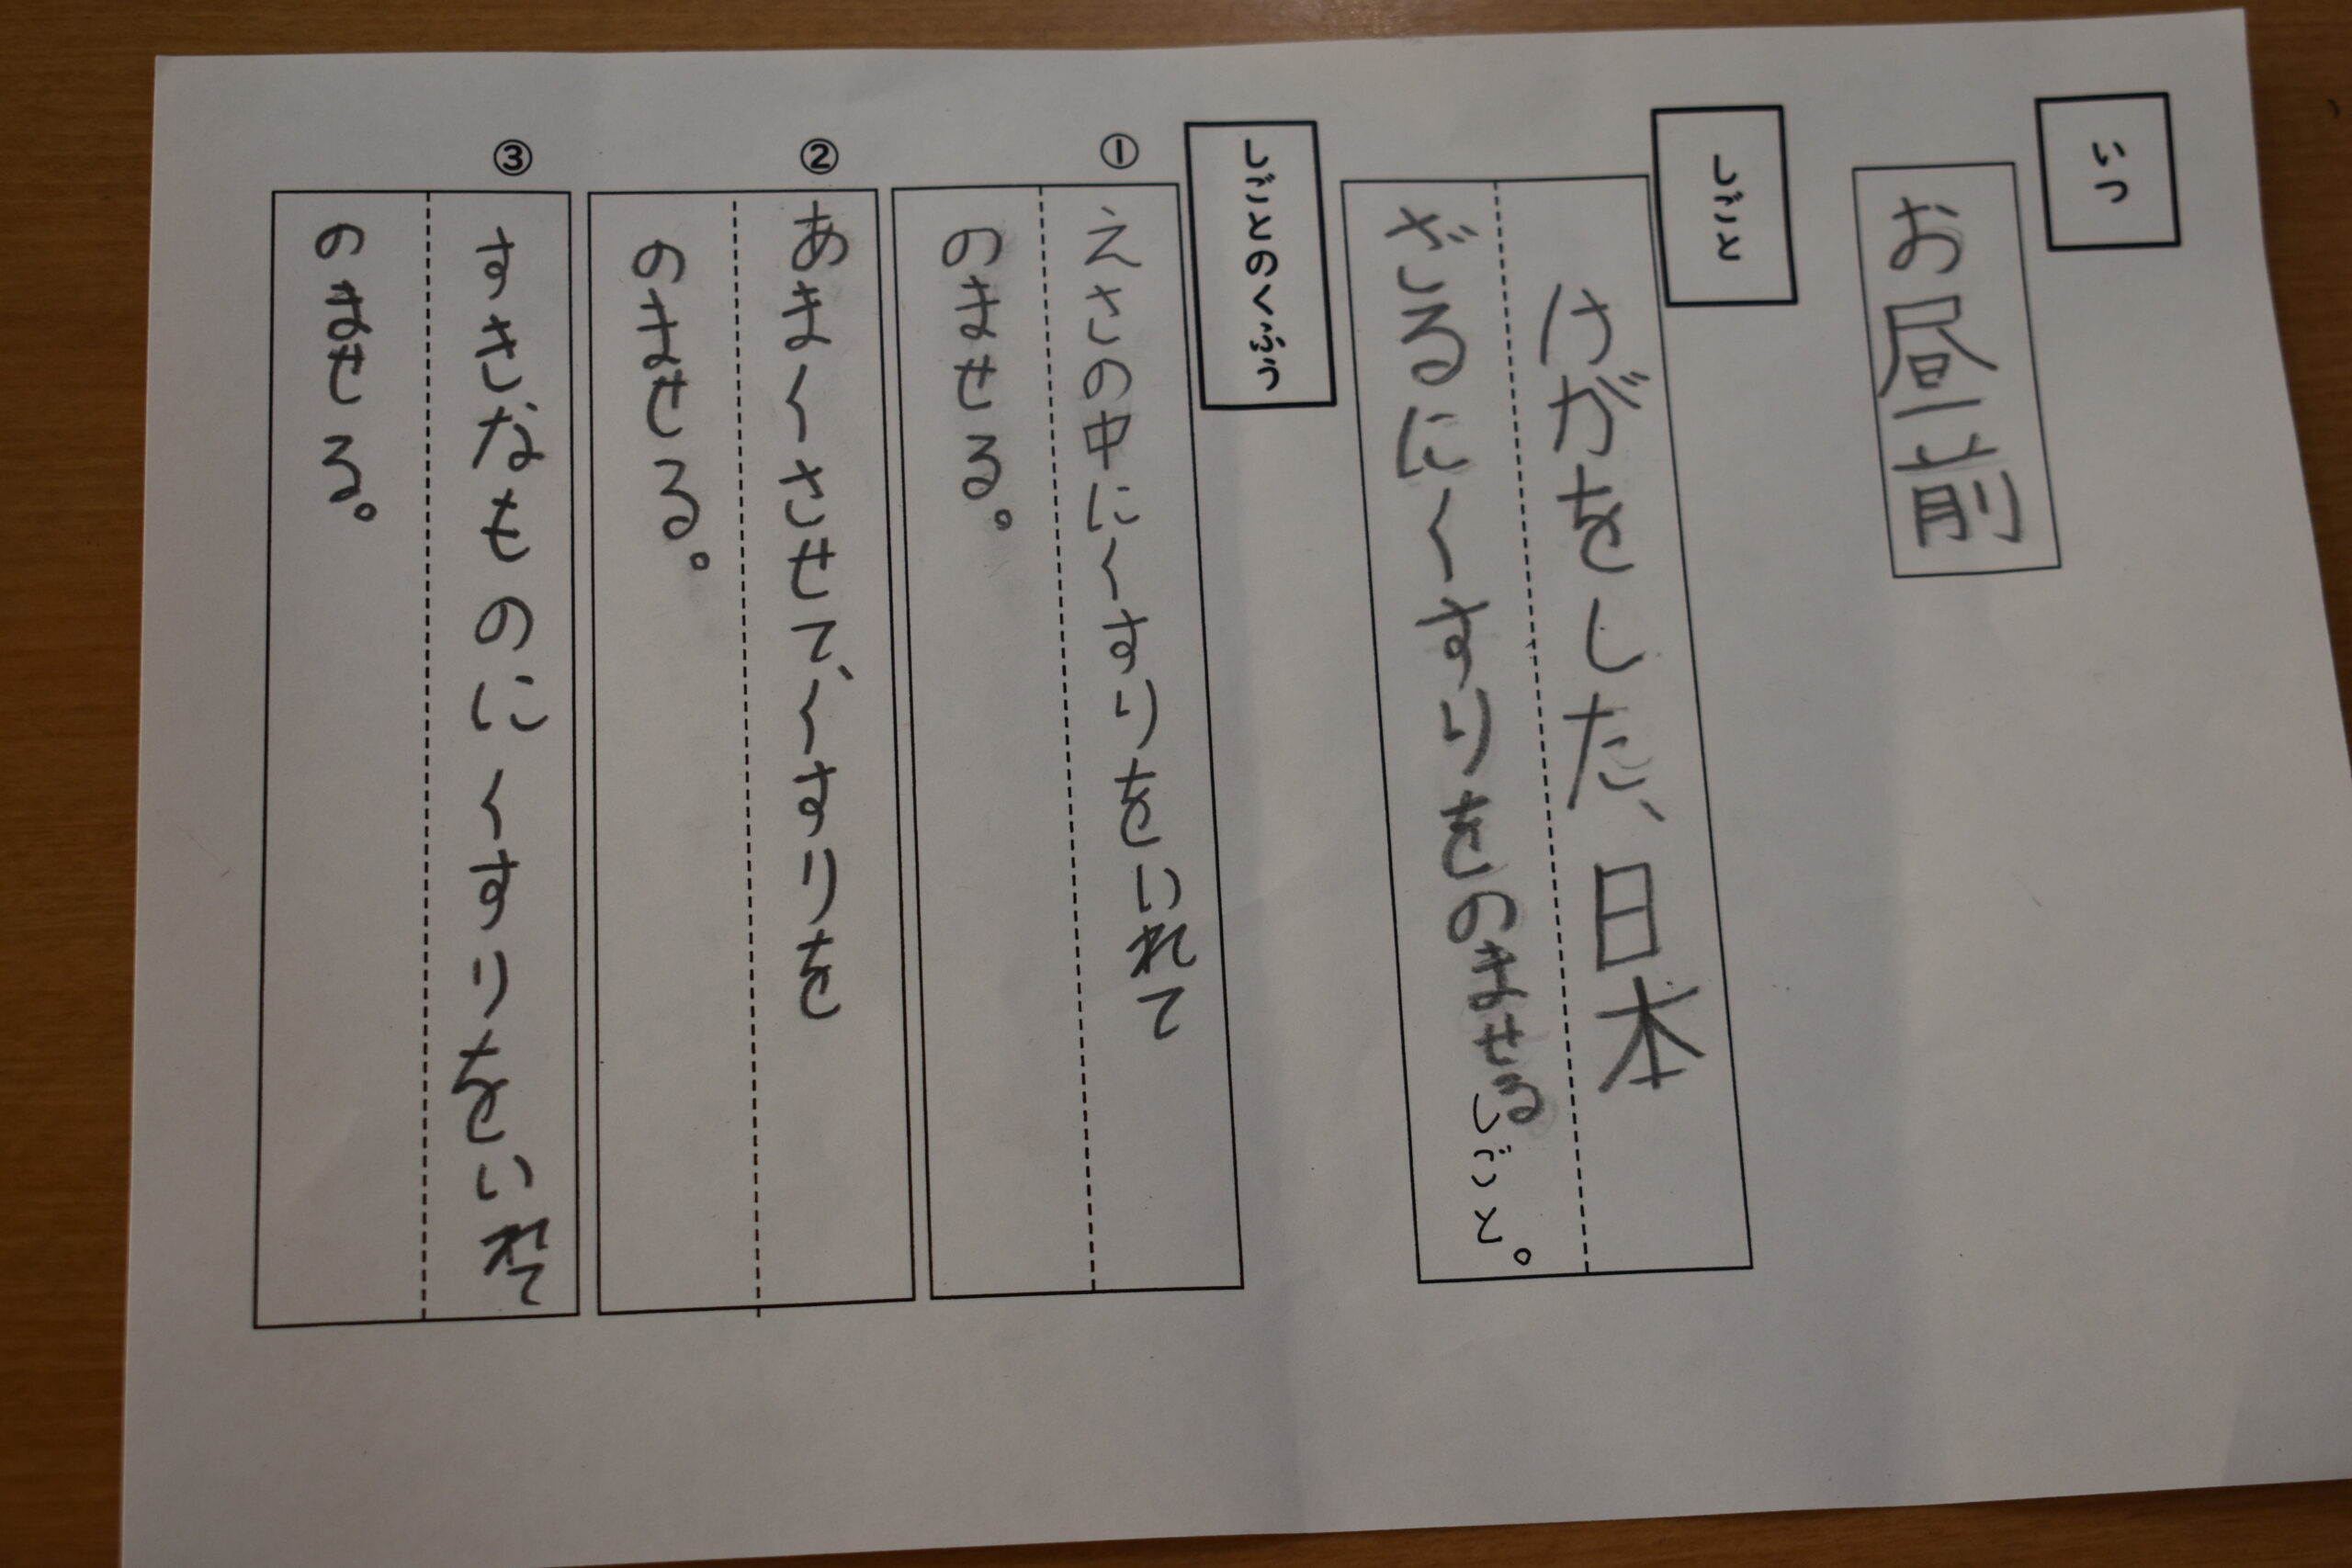 いつ
お昼前
しごと
けがをした、日本
ざるにくすりをのませる
しごと。
しごとのくふう
①
えさの中にくすりをいれて
のませる。
②
あまくさせて、くすりを
のませる。
③
すきなものにくすりをいれて
のませる。